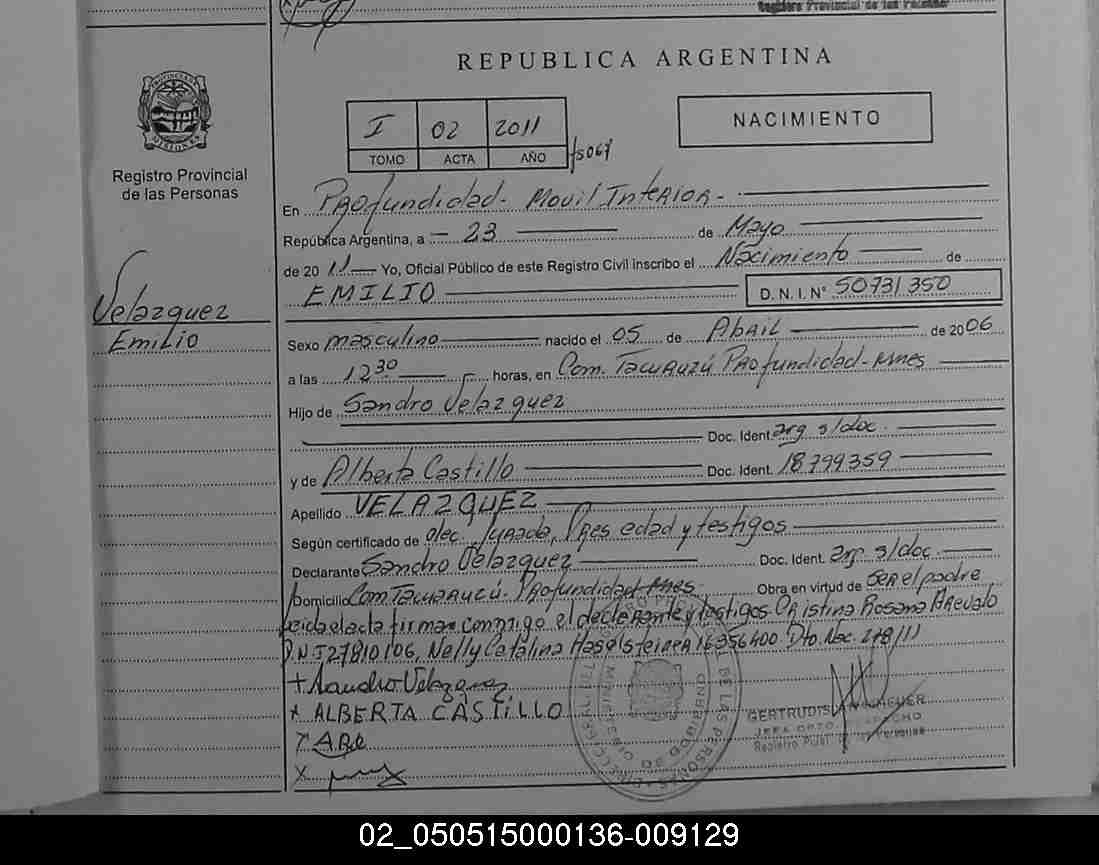 Registro Provincial de las Personas
REPUBLICA ARGENTINA
PROVINCIA DE MISIONES
Registro Provincial
de las Personas
I 02 2011
TOMO ACTA AÑO
NACIMIENTO
En Profundidad - Movil Interior -
República Argentina, a - 23 de Mayo
de 20 11 Yo, Oficial Público de este Registro Civil inscribo el Nacimiento de
EMILIO D.N.I.N° 50731350
Velazquez
Emilio
Sexo masculino nacido el 05 de Abril de 2006
a las 12 30 horas, en Com. Tacuaruzú Profundidad - Mnes
Hijo de Sandro Velazquez
Doc. Ident. arg s/doc.
y de Alberta Castillo Doc. Ident. 18799359
Apellido VELAZQUEZ
Según certificado de Dec. Jurada, Pres edad y testigos
Declarante Sandro Velazquez Doc. Ident. arg s/doc.
Domicilio Com Tacuaruzú. Profundidad Mnes. Obra en virtud de ser el padre
Leida el acta firman conmigo el declarante y testigos Cristina Rosana Arevalo
DNI 27810106, Nelly Catalina Haselsteiner 16356400 Dto Nac. 278/11
+ Sandro Velazquez
x ALBERTA CASTILLO
GERTRUDIS
JEFA DPTO.
Registro Pcial. de las Personas
02_050515000136-009129